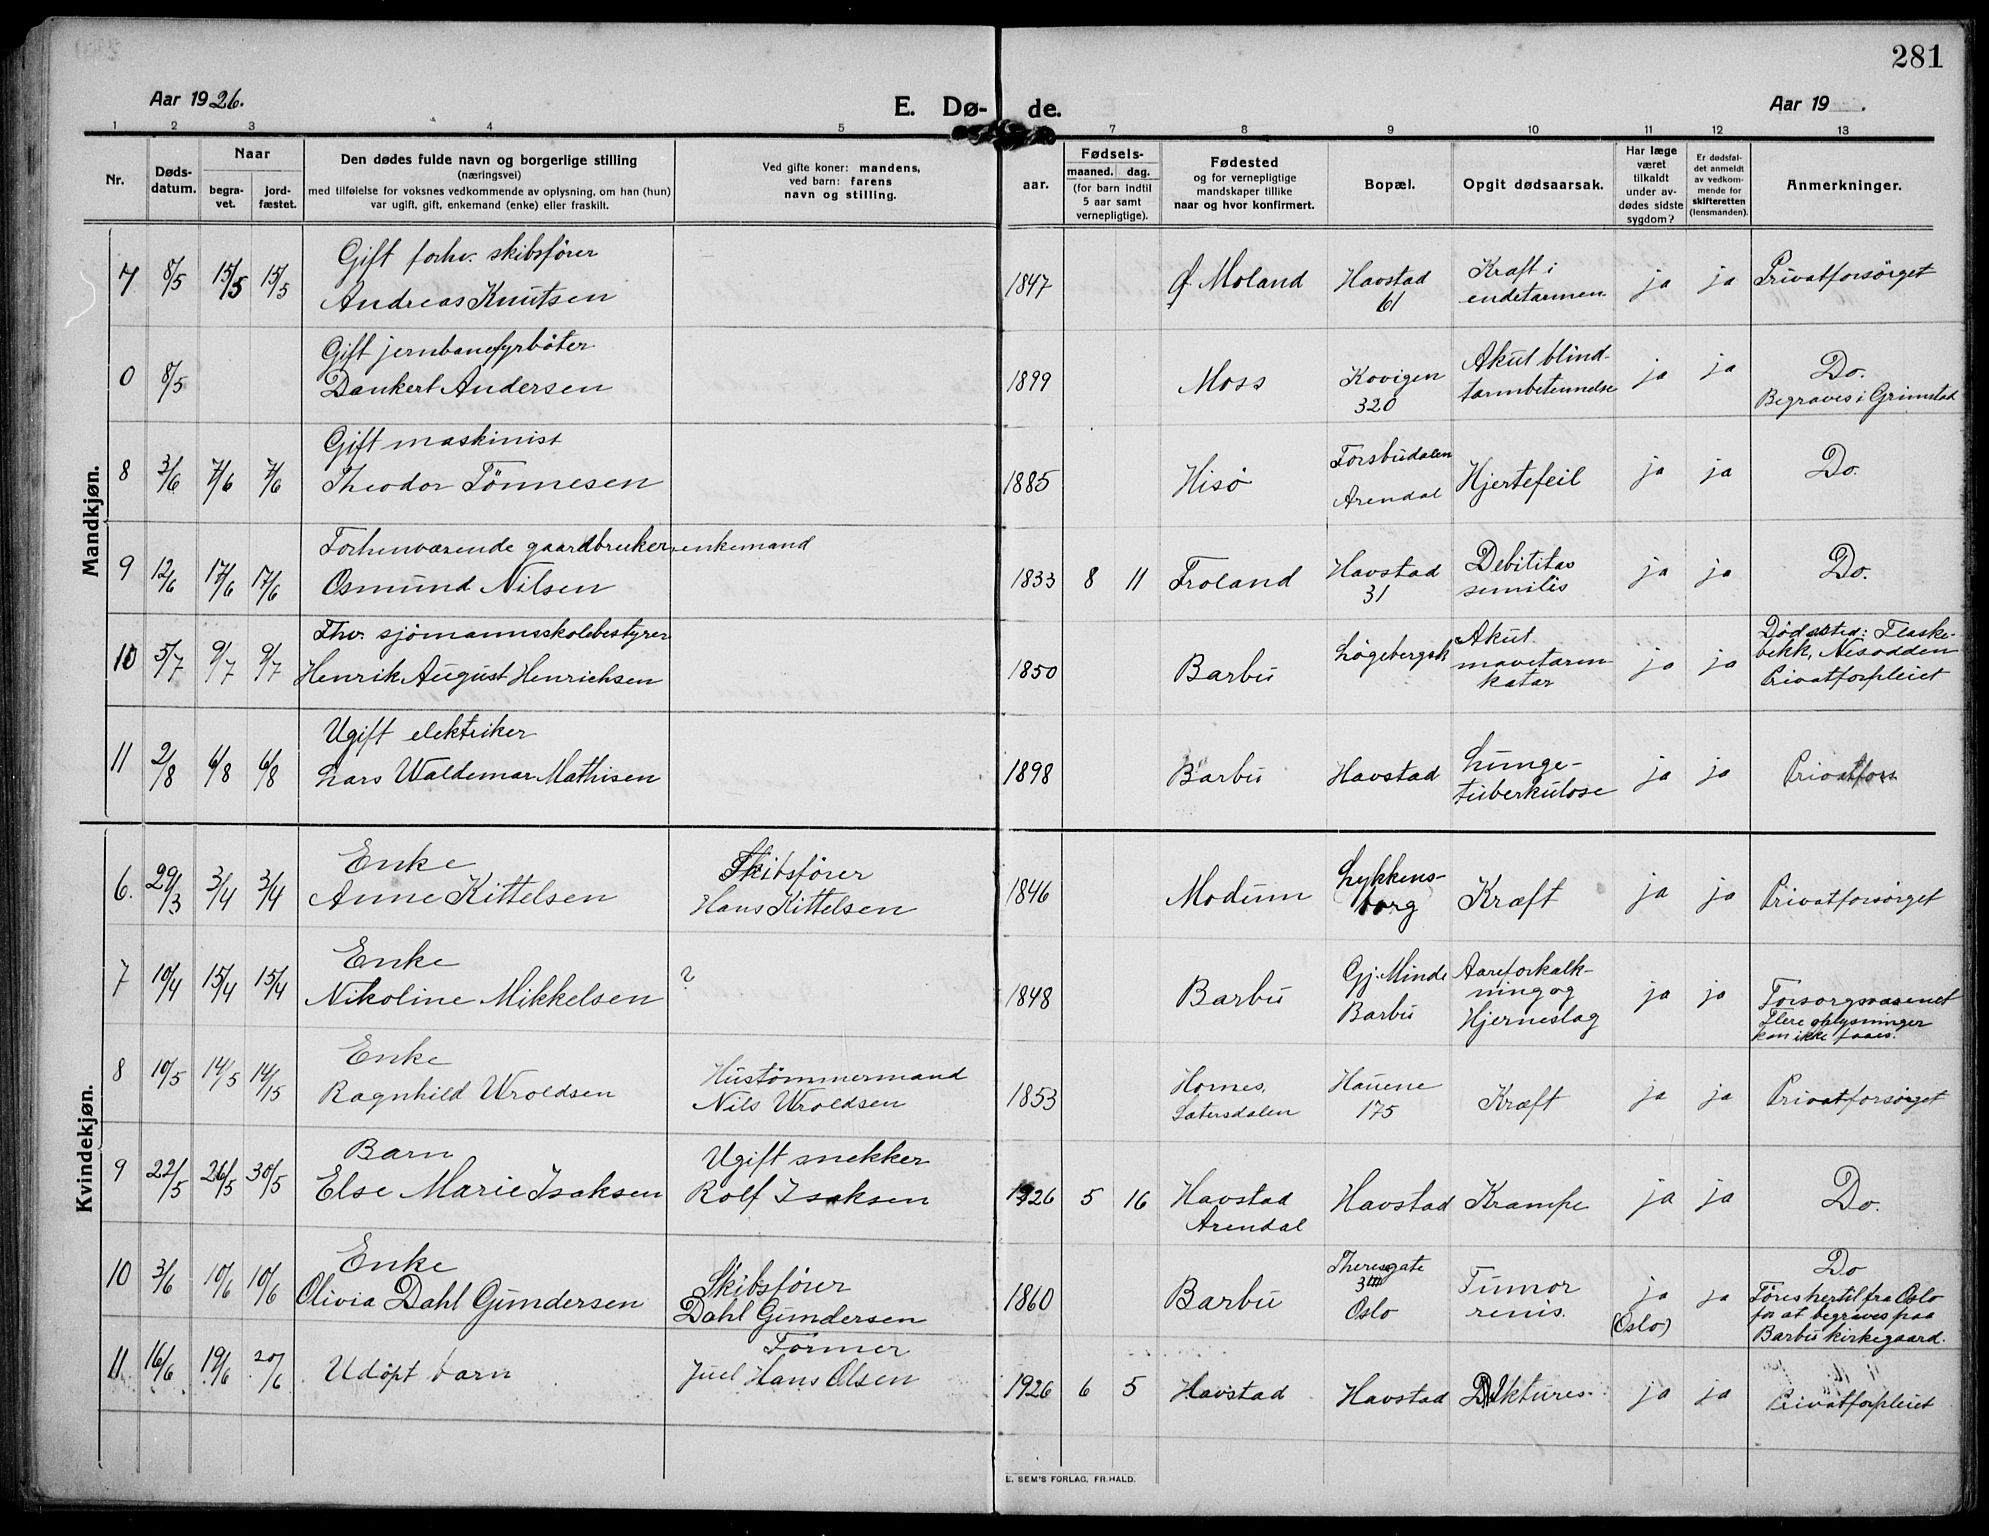 281
Aar 1926.
E. Dø-
de.
Aar 19 .
1 2 3 4 5 7 8 9 10 11 12 13
Nr.
Døds-
datum.
Naar
begra-
vet.
jord-
fæstet.
Den dødes fulde navn og borgerlige stilling
(næringsvei)
med tilføielse for voksnes vedkommende av oplysning, om han (hun)
var ugift, gift, enkemand (enke) eller fraskilt.
Ved gifte koner: mandens,
ved barn: farens
navn og stilling.
aar.
Fødsels-
maaned. dag.
(for barn indtil
5 aar samt
vernepligtige).
Fødested
og for vernepligtige
mandskaper tillike
naar og hvor konfirmert.
Bopæl.
Opgit dødsaarsak.
Har læge
været
tilkaldt
under av-
dødes sidste
sygdom?
Er dødsfal-
det anmeldt
av vedkom-
mende for
skifteretten
(lensmanden).
Anmerkninger.
Mandkjøn.
7 8/5 15/5 15/5
Gift forhv. skibsfører
Andreas Knutsen
1847
Ø. Moland
Havstad
61
Kræft i
endetarmen
ja ja
Privatforsørget
0 8/5
Gift jernbanefyrbøter
Dankert Andersen
1899
Moss
Kovigen
320
Akut blind-
tarmbetændelse
ja ja
Do.
Begraves i Grimstad
8 3/6 7/6 7/6
Gift maskinist
Theodor Tönnesen
1885
Hisø
Forsbudalen
Arendal
Hjertefeil
ja ja
Do.
9 12/6 17/6 17/6
Forhenværende gaardbruker, enkemand
Osmund Nilsen
1833 8 11
Froland
Havstad
31
Debilitas
senilis
ja ja
Do.
10 5/7 9/7 9/7
Fhv. sjømannsskolebestyrer
Henrik August Henrichsen
1850
Barbu
Akut
mavetarm
katar
ja ja
Dødssted: Flaske-
bekk, Nesodden
Privatforpleiet
11 2/8 6/8 6/8
Ugift elektriker
Lars Waldemar Mathisen
1898
Barbu
Havstad
Lunge-
tuberkulose
ja ja
Privatfors
Kvindekjøn.
6. 29/3 3/4 3/4
Enke
Anne Kittelsen
Skibsfører
Hans Kittelsen
1846
Modum
Lykkens-
borg
Kræft
ja ja
Privatforsørget
7 10/4 15/4 15/4
Enke
Nikoline Mikkelsen
?
1848
Barbu
Gj. Minde
Barbu
Aareforkalk-
ning og
Hjerneslag
ja ja
Forsorgsvæsenet
Flere oplysninger
kan ikke faaes.
8 10/5 14/5 14/15
Enke
Ragnhild Uroldsen
Hustømmermand
Nils Uroldsen
1853
Hornes,
Sætersdalen
Hauene
175
Kræft
ja ja
Privatforsørget
9 22/5 26/5 30/5
Barn
Else Marie Isaksen
Ugift snekker
Rolf Isaksen
1926 5 16
Havstad
Arendal
Havstad
Krampe
ja ja
Do.
10 3/6 10/6 10/6
Enke
Olivia Dahl Gundersen
Skibsfører
Dahl Gundersen
1860
Barbu
Theresgate
Oslo
Tumor
renis.
ja
(Oslo)
ja
Do
Føres hertil fra Oslo
for at begraves paa
Barbu kirkegaard.
11 16/6 19/6 20/6
Udøpt barn
Former
Juel Hans Olsen
1926 6 5
Havstad
Havstad
ja ja
Privatforpleiet
E. SEM'S FORLAG, FR.HALD.